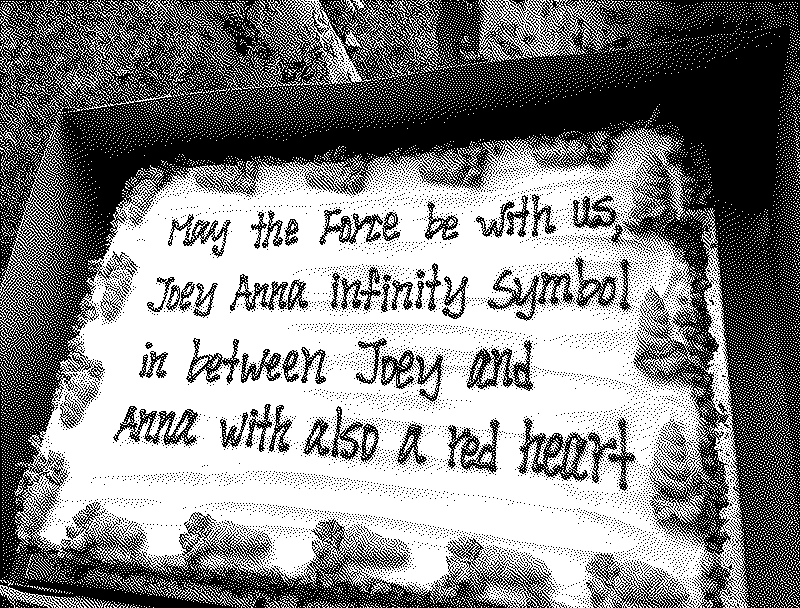 May the Force be with us,
Joey Anna infinity symbol
in between Joey and
Anna with also a red heart